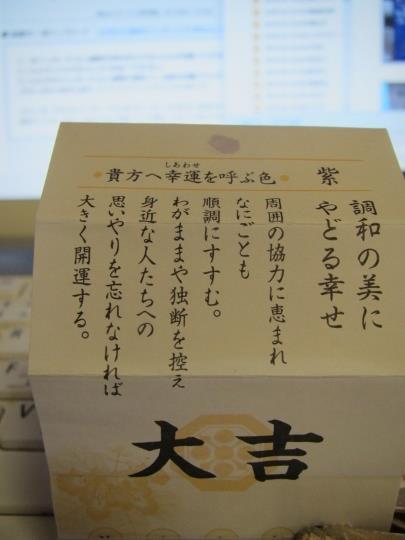 ・貴方へ幸運を呼ぶ色・ 紫
しあわせ
調和の美に
やどる幸せ
周囲の協力に恵まれ
なにごとも
順調にすすむ。
わがままや独断を控え
身近な人たちへの
思いやりを忘れなければ
大きく開運する。
大吉